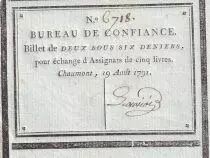 N.o 6718.
BUREAU DE CONFIANCE.
Billet de DEUX SOUS SIX DENIERS,
pour échange d'Assignats de cinq livres.
Chaumont, 19 Août 1791.